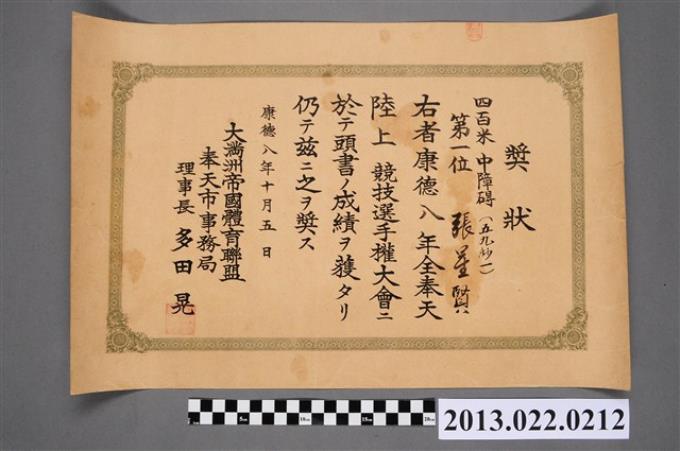 奬狀
四百米中障碍(五九秒一)
第一位 張星賢
右者康德八年全奉天
陸上競技選手權大會ニ
於テ頭書ノ成績ヲ獲タリ
仍テ茲ニ之ヲ奬ス
康德八年十月五日
大滿洲帝國體育聯盟
奉天市事務局
理事長 多田晃
5cm
10cm
15cm
20cm
2013.022.0212